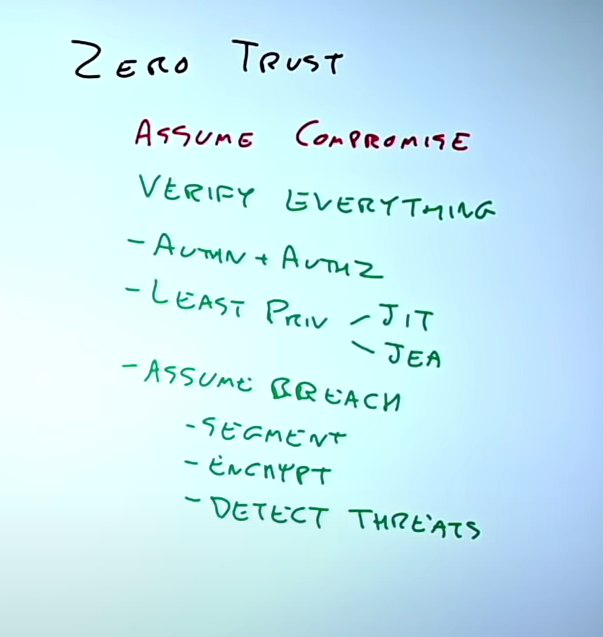 ZERO TRUST
ASSUME COMPROMISE
VERIFY EVERYTHING
- AUTHN + AUTHZ
- LEAST PRIV - JIT
- JEA
- ASSUME BREACH
- SEGMENT
- ENCRYPT
- DETECT THREATS